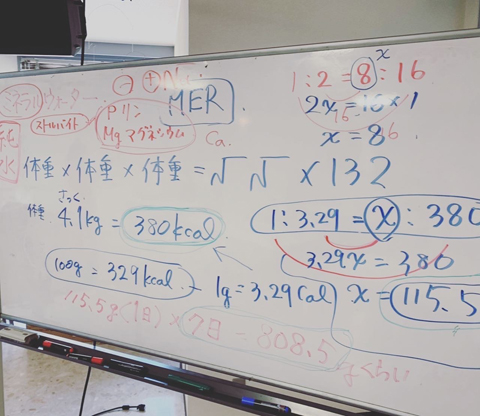 ⊖ ⊕ N
ミネラルウォーター
ストルバイト
P リン
Mg マグネシウム
MER
Ca.
純水
x
1:2 = 8:16
2x = 16×1
x = 8
体重×体重×体重=√ √ ×132
さっく
体重 4.1kg = 380kcal
100g = 329kcal. – 1g = 3.29Cal
115.5g(1日)×7日=808.5
gくらい
1:3.29 = x:380
3.29x = 380
x = 115.5